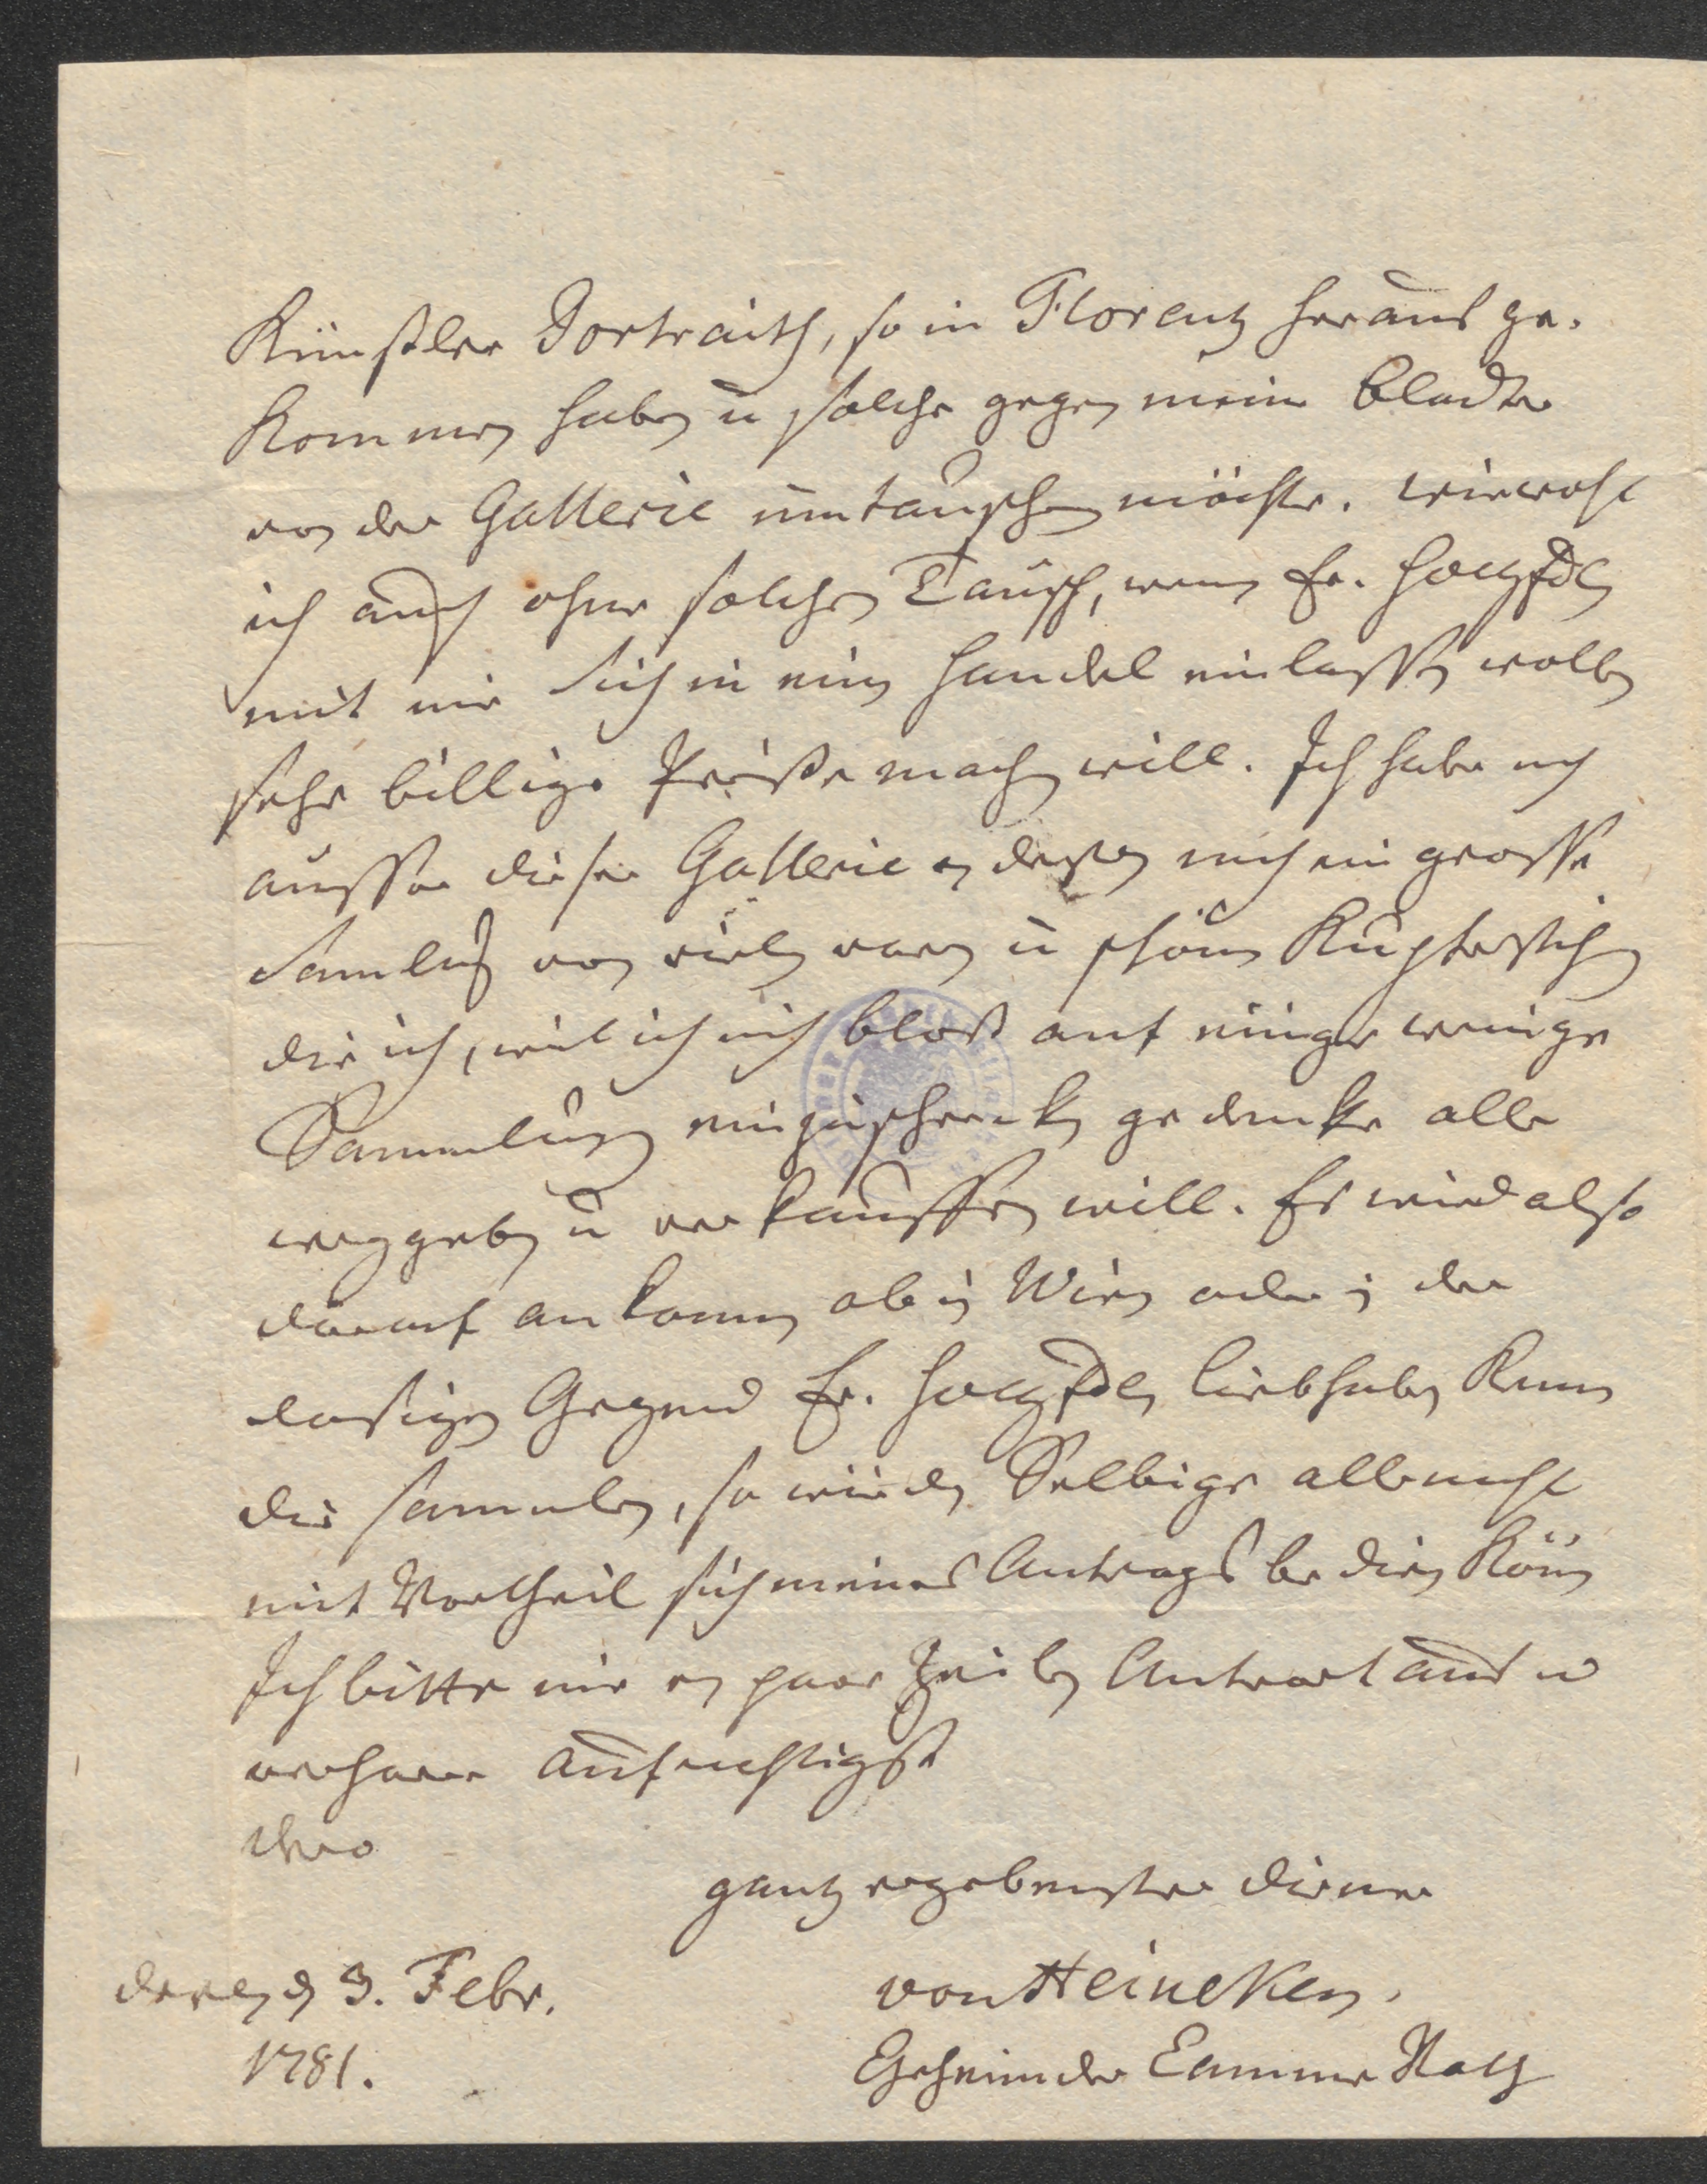 Künstler Portraits, so in Florentz heraus ge-
kommen haben u solche gegen meine Bladter
von der Gallerie umtauschen möchte. wiewohl
ich auch ohne solchen Tausch, wenn Ew. Hochedl
mit mir Sich in ein Handel einlassen wollen
sehr billige Preiße machen will. Ich habe noch
ausser dieser Gallerie in Dreßden noch ein grosse
Samlung von vielen raren u schönen Kupferstichen
die ich, weil ich mich bloß auf einige wenige
Sammlungen einzuschrencken gedencke alle
weggeben u verkauffen will. Es wird also
darauf ankommen ob in Wien oder in der
dasigen Gegend Ew. Hochedl Liebhaber kennen
die sammlen, so würden Selbige allemahl
mit Vortheil sich meines Antrags bedienen können
Ich bitte mir ein paar Zeilen Antwort aus u
verharre aufrichtigst
Dero
gantz ergebenster Diener
von Heineken.
den 3. Febr.
1781.
Geheimder Cammer Rath